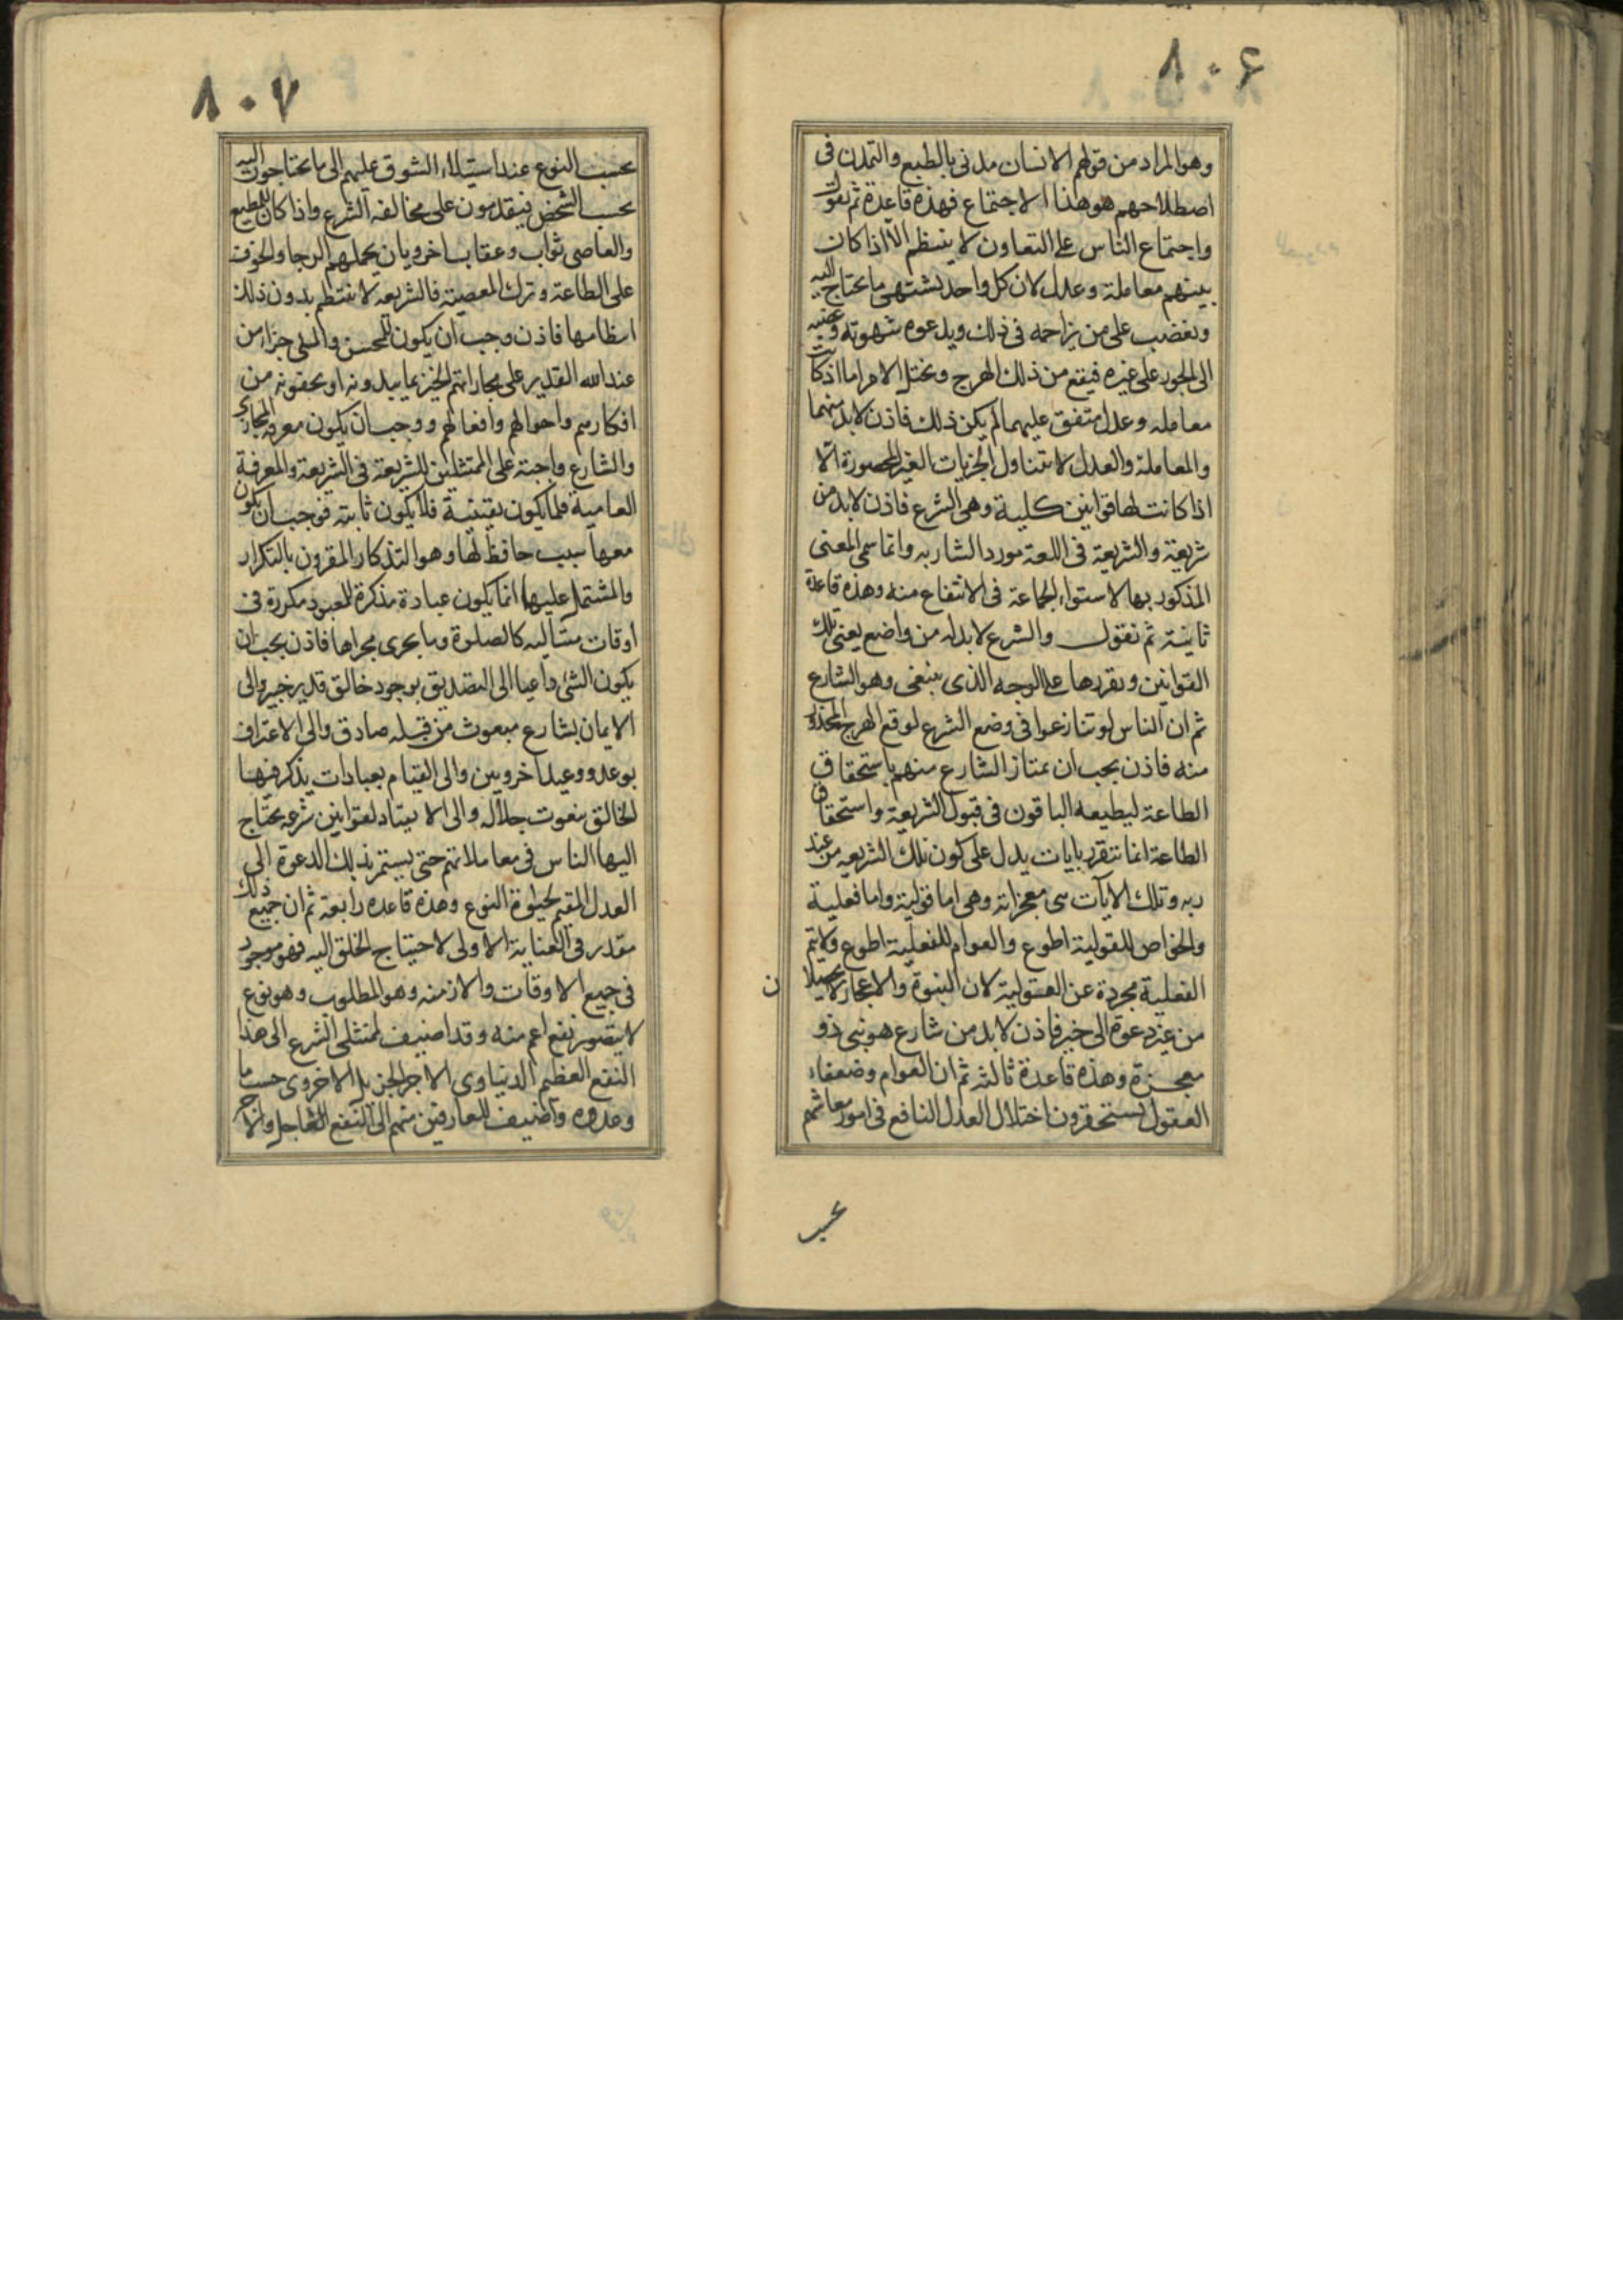 ٨٠۶
وهو المراد من قولهم الانسان مدنى بالطبع والتمدن فى
اصطلاحهم هو هذا الاجتماع فهذه قاعدة ثم نقول
واجتماع الناس على التعاون لا ينتظم الا اذا كان
بينهم معاملة وعدل لان كل واحد يشتهى ما يحتاج اليه
ويغضب على من يزاحمه فى ذلك ويدعوه شهوته وغضبه
الى الجور على غيره فيقع من ذلك الهرج ويختل الامر اما اذ كانت
معامله وعدل متفق عليهما لم يكن ذلك فاذن لابد منهما
والمعاملة والعدل لا يتناول الجزيات الغير المحصورة الا
اذا كانت لها قوانين كلية وهى الشرع فاذن لابد من
شريعة والشريعة فى اللغة مورد الشاربه وانما سمى المعنى
المذكور بها لاستواء الجماعة فى الانتفاع منه وهذه قاعدة
ثانية ثم نقول والشرع لابد له من واضع يعنى تلك
القوانين ويقررها على الوجه الذى ينبغى وهو الشارع
ثم ان الناس لو تنازعوا فى وضع الشرع لوقع الهرج المحذور
منه فاذن يجب ان يمتاز الشارع منهم باستحقاق
الطاعة ليطيعه الباقون فى قبول الشريعة واستحقاق
الطاعة انما تتقرر بايات يدل على كون تلك الشريعه من عند
ربه وتلك الايآت سى معجزاته وهى اما قولية واما فعلية
والخواص للقولية اطوع والعوام للفعلية اطوع ولا يتم
الفعلية مجردة عن القولية لان النبوة والاعجاز لا يحصلان
من غير دعوة الى خير فاذن لابد من شارع هو نبى ذو
معجزة وهذه قاعدة ثالثه ثم ان العوام وضعفاء
العقول يستحقرون اختلال العدل النافع فى امور معاشهم
٨٠٧
بحسب النوع عند استيلاء الشوق عليهم الى ما يحتاجون اليه
بحسب الشخص فيقدمون على مخالفه الشرع واذا كان للمطيع
والعاصى ثواب وعقاب اخرويان يحملهم الرجا والخوف
على الطاعة وترك المعصية فالشريعه لا ينتظم بدون ذلك
انتظامها فاذن وجب ان يكون للمحسن والمسى جزاء من
عند الله القدير على مجازاتهم الخبير بما يبدونه او يخفونه من
افكارهم واحوالهم وافعالهم ووجب ان يكون معرفه المجازى
والشارع واجبة على الممتثلين للشريعة فى الشريعة والمعرفة
العامية فلما يكون يقينية فلا يكون ثابته فوجب ان يكون
معها سبب حافظ لها وهو التذكار المقرون بالتكرار
والمشتمل عليها انما يكون عبادة مذكرة للمعبود مكررة فى
أوقات متتاليه كالصلوة وما يجرى مجراها فاذن يجب ان
يكون النبى داعيا الى التصديق بوجود خالق قدير خبير والى
الايمان بشارع مبعوث من قبله صادق والى الاعتراف
بوعد ووعيد اخرويين والى القيام بعبادات يذكر فيها
الخالق بنعوت جلاله والى الانقياد لقوانين شرعه يحتاج
اليها الناس فى معاملاتهم حتى يستمر بذلك الدعوة الى
العدل المقيم لحيوة النوع وهذه قاعده رابعة ثم ان جميع ذلك
مقدر فى العناية الاولى لاحتياج الخلق اليه فهو موجود
فى جميع الاوقات والازمنه وهو المطلوب وهو نفع
لا يتصور نفع اعم منه وقد اضيف لممتثلى الشرع الى هذا
النفع العظيم الدنياوى الاجر الجزيل الاخروى حسب ما
وعدوه واضيف للعارفين منهم الى النفع العاجل والاجر